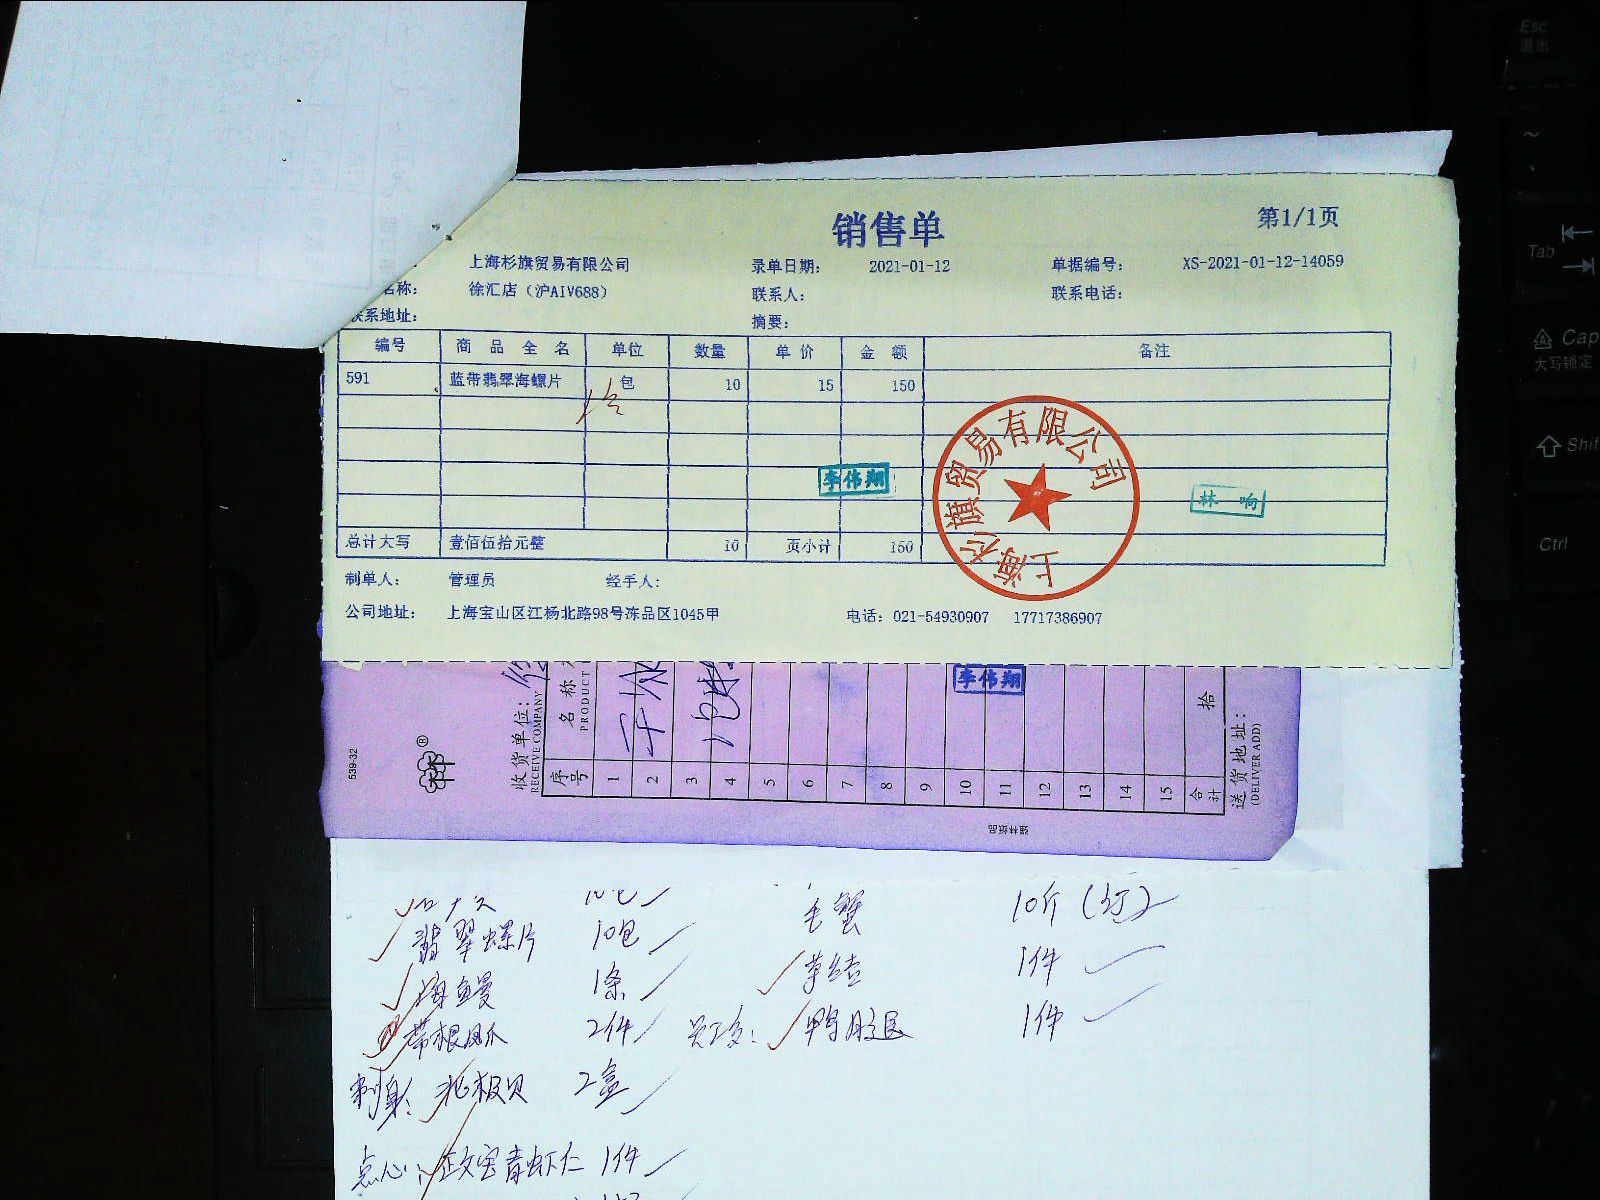 销售单 第1/1页
上海杉旗贸易有限公司 录单日期: 2021-01-12 单据编号: XS-2021-01-12-14059
名称: 徐汇店(沪AIV688) 联系人: 联系电话:
联系地址: 摘要:
编号 商品全名 单位 数量 单价 金额 备注
591 蓝带翡翠海螺片 包 10 15 150
李伟翔
上海杉旗贸易有限公司
林响
总计大写 壹佰伍拾元整 10 页小计 150
制单人: 管理员 经手人:
公司地址: 上海宝山区江杨北路98号冻品区1045甲 电话: 021-54930907 17717386907
539-32
收货单位:
RECEIVE COMPANY
序号 名称
PRODUCT
1
2
3
4
5
6
7
8
9
10
11
12
13
14
15
合计 拾
送货地址:
(DELIVER ADD)
李伟翔
强林纸品
10包 毛蟹 10斤(红)
翡翠螺片 10包 草结 1件
海鳗 1条
带根凤爪 2件 员工多: 鸭腿 1件
刺身: 北极贝 2盒
点心: 青虾仁 1件
Esc
退出
~
Tab
Cap
大写锁定
Shif
Ctrl